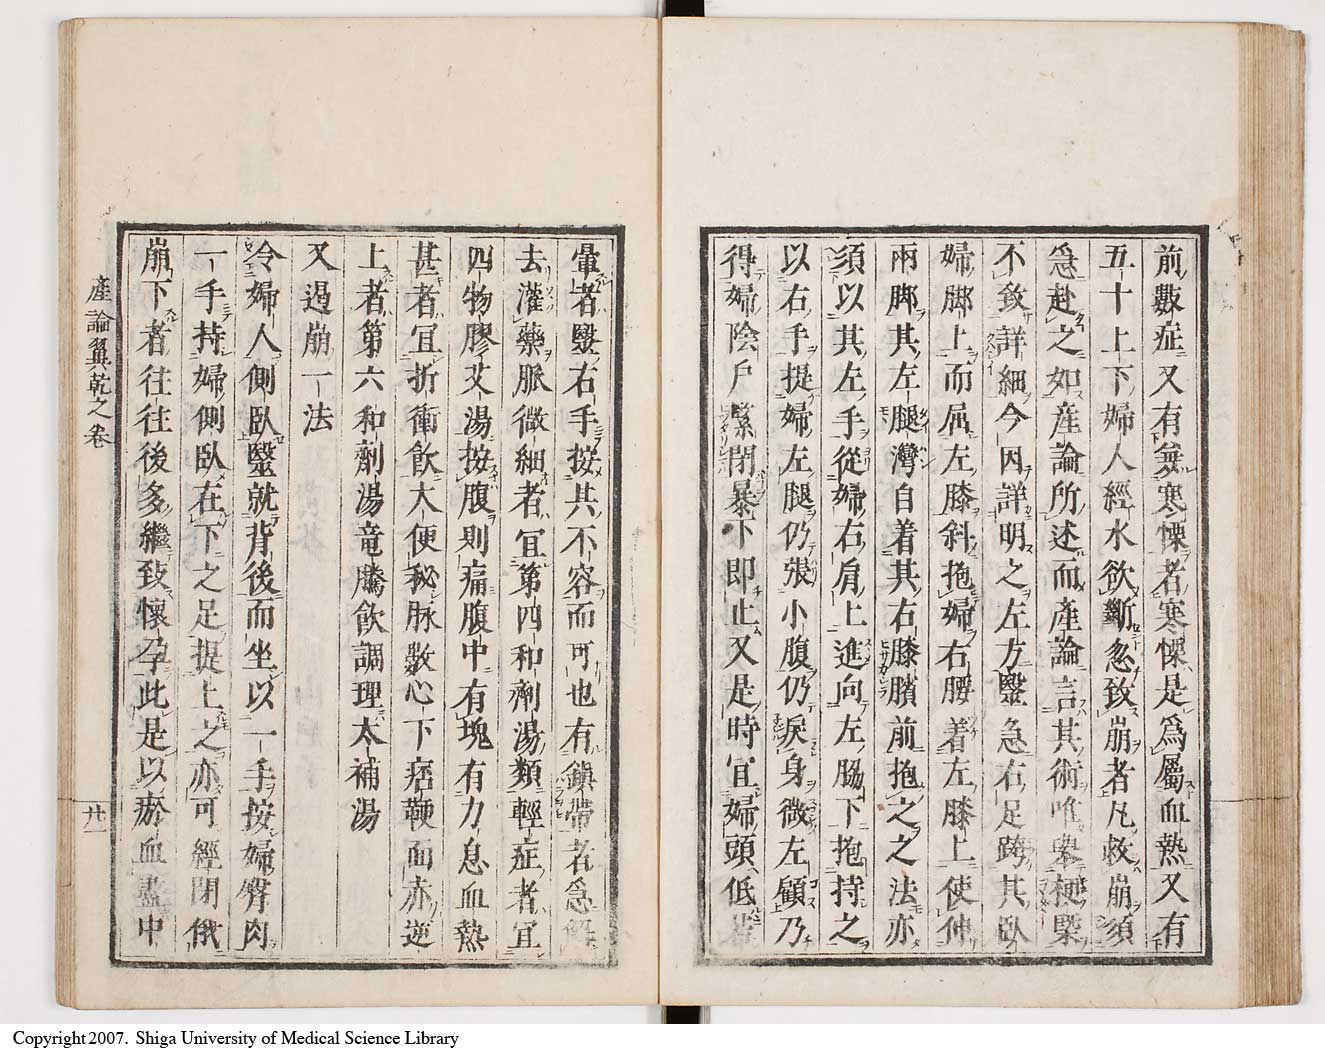 前數症又有無寒慄者寒慄是爲屬血熱又有
五十上下婦人經水欲斷忽致崩者凡救崩須
急赴之如産論所述而産論言其術唯擧梗槩
不致詳細今因詳明之左方毉急右足跨其臥
婦脚上而屈左膝斜抱婦右腰着左膝上使伸
兩脚其左腿灣自着其右膝臏前抱之之法亦
須以其左手從婦右肩上進向左脇下抱持之
以右手提婦左腿仍張小腹仍戾身微左顧乃
得婦陰戶緊閉暴下即止又是時宜婦頭低
暈者毉右手按其不容而可也有鎭帶者急
去灌藥脈微細者宜第四和劑湯類輕症者宜
四物膠艾湯按腹則痛腹中有塊有力息血熱
甚者宜折衝飮大便秘脉數心下痞鞕而亦逆
上者第六和劑湯竜騰飮調理太補湯
又過崩一法
令婦人側臥毉就背後而坐以一手按婦臀肉
一手持婦側臥在下之足提上之亦可經閉俄
崩下者往往後多繼致懷孕此是以瘀血盡中
産論翼乾之卷
廿一
Copyright 2007. Shiga University of Medical Science Library